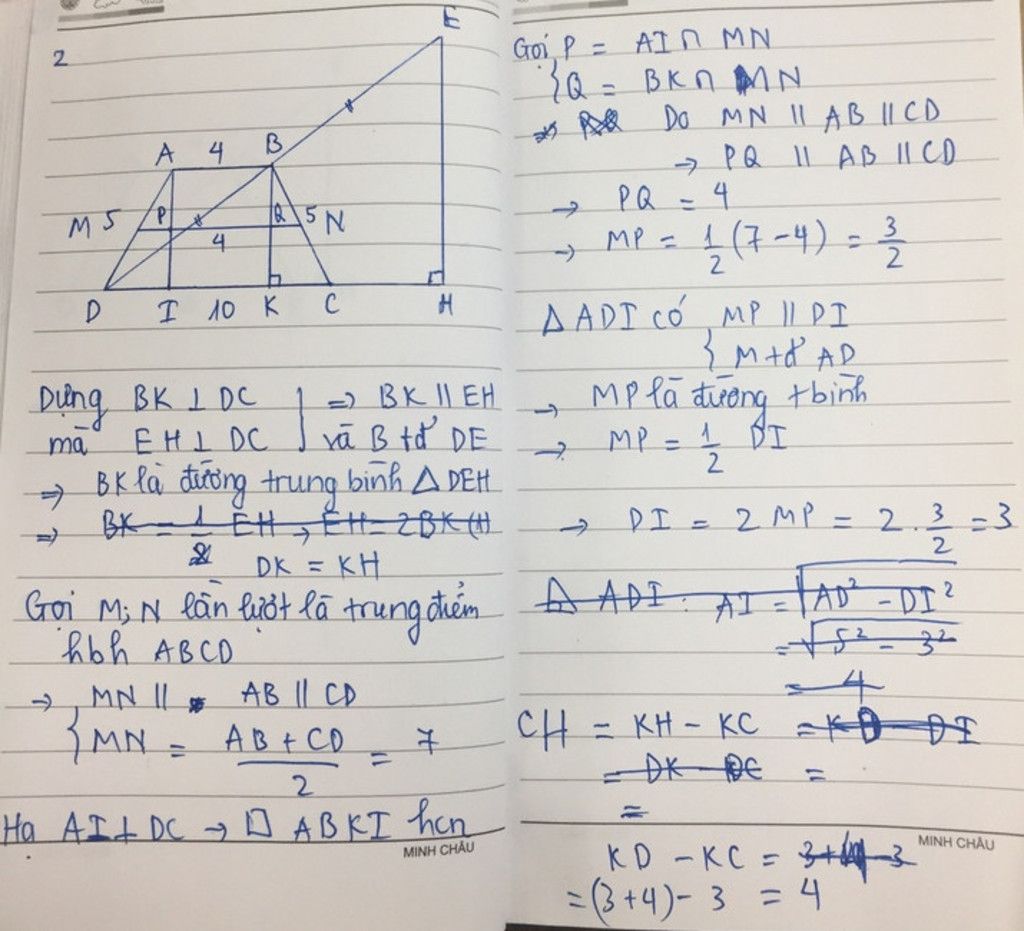 2
E
A 4 B
M 5 P Q 5 N
4
D I 10 K C H
Dựng BK ⊥ DC } => BK || EH
mà EH ⊥ DC } và B tđ' DE
=> BK là đường trung bình △ DEH
=> BK = 1/2 EH → EH = 2BK (H
DK = KH
Gọi M; N lần lượt là trung điểm
hbh ABCD
→ MN || AB || CD
{ MN = (AB + CD)/2 = 7
Hạ AI ⊥ DC → □ ABKI hcn
MINH CHÂU
Gọi P = AI ∩ MN
{ Q = BK ∩ MN
Do MN || AB || CD
→ PQ || AB || CD
→ PQ = 4
→ MP = 1/2 (7 - 4) = 3/2
△ ADI có MP || DI
{ M tđ' AD
→ MP là đường tbình
→ MP = 1/2 DI
→ DI = 2 MP = 2 . 3/2 = 3
△ ADI : AI = √AD² - DI²
= √5² - 3²
= 4
CH = KH - KC = KD - DI
= DK - DC =
=
MINH CHÂU
KD - KC = 3+4 - 3
= (3+4) - 3 = 4